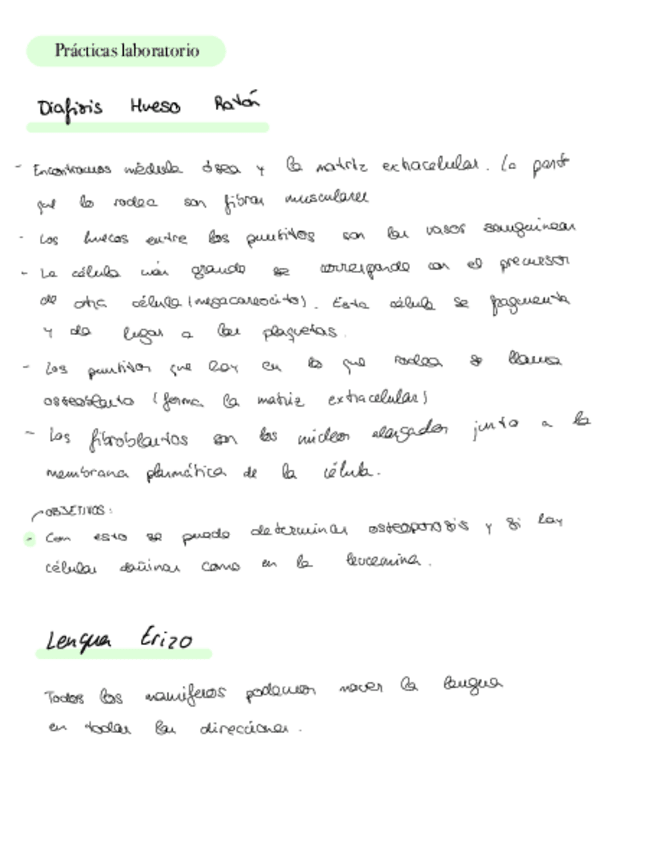 Prácticas laboratorio
Diafisis Hueso Ratón
- Encontramos médula ósea y la matriz extracelular. La parte
que lo rodea son fibras musculares
- Los huecos entre los puntitos son los vasos sanguíneos
- La célula más grande se corresponde con el precursor
de otra célula (megacareocito). Esta célula se fragmenta
y da lugar a las plaquetas.
- Los puntitos que hay en lo que rodea se llama
osteoblasto (forma la matriz extracelular)
- Los fibroblastos son los núcleos alargados junto a la
membrana plasmática de la célula.
OBJETIVOS:
- Con esto se puede determinar osteoporosis y si hay
células dañinas como en la leucemina.
Lengua Erizo
Todos los mamíferos podemos mover la lengua
en todas las direcciones.